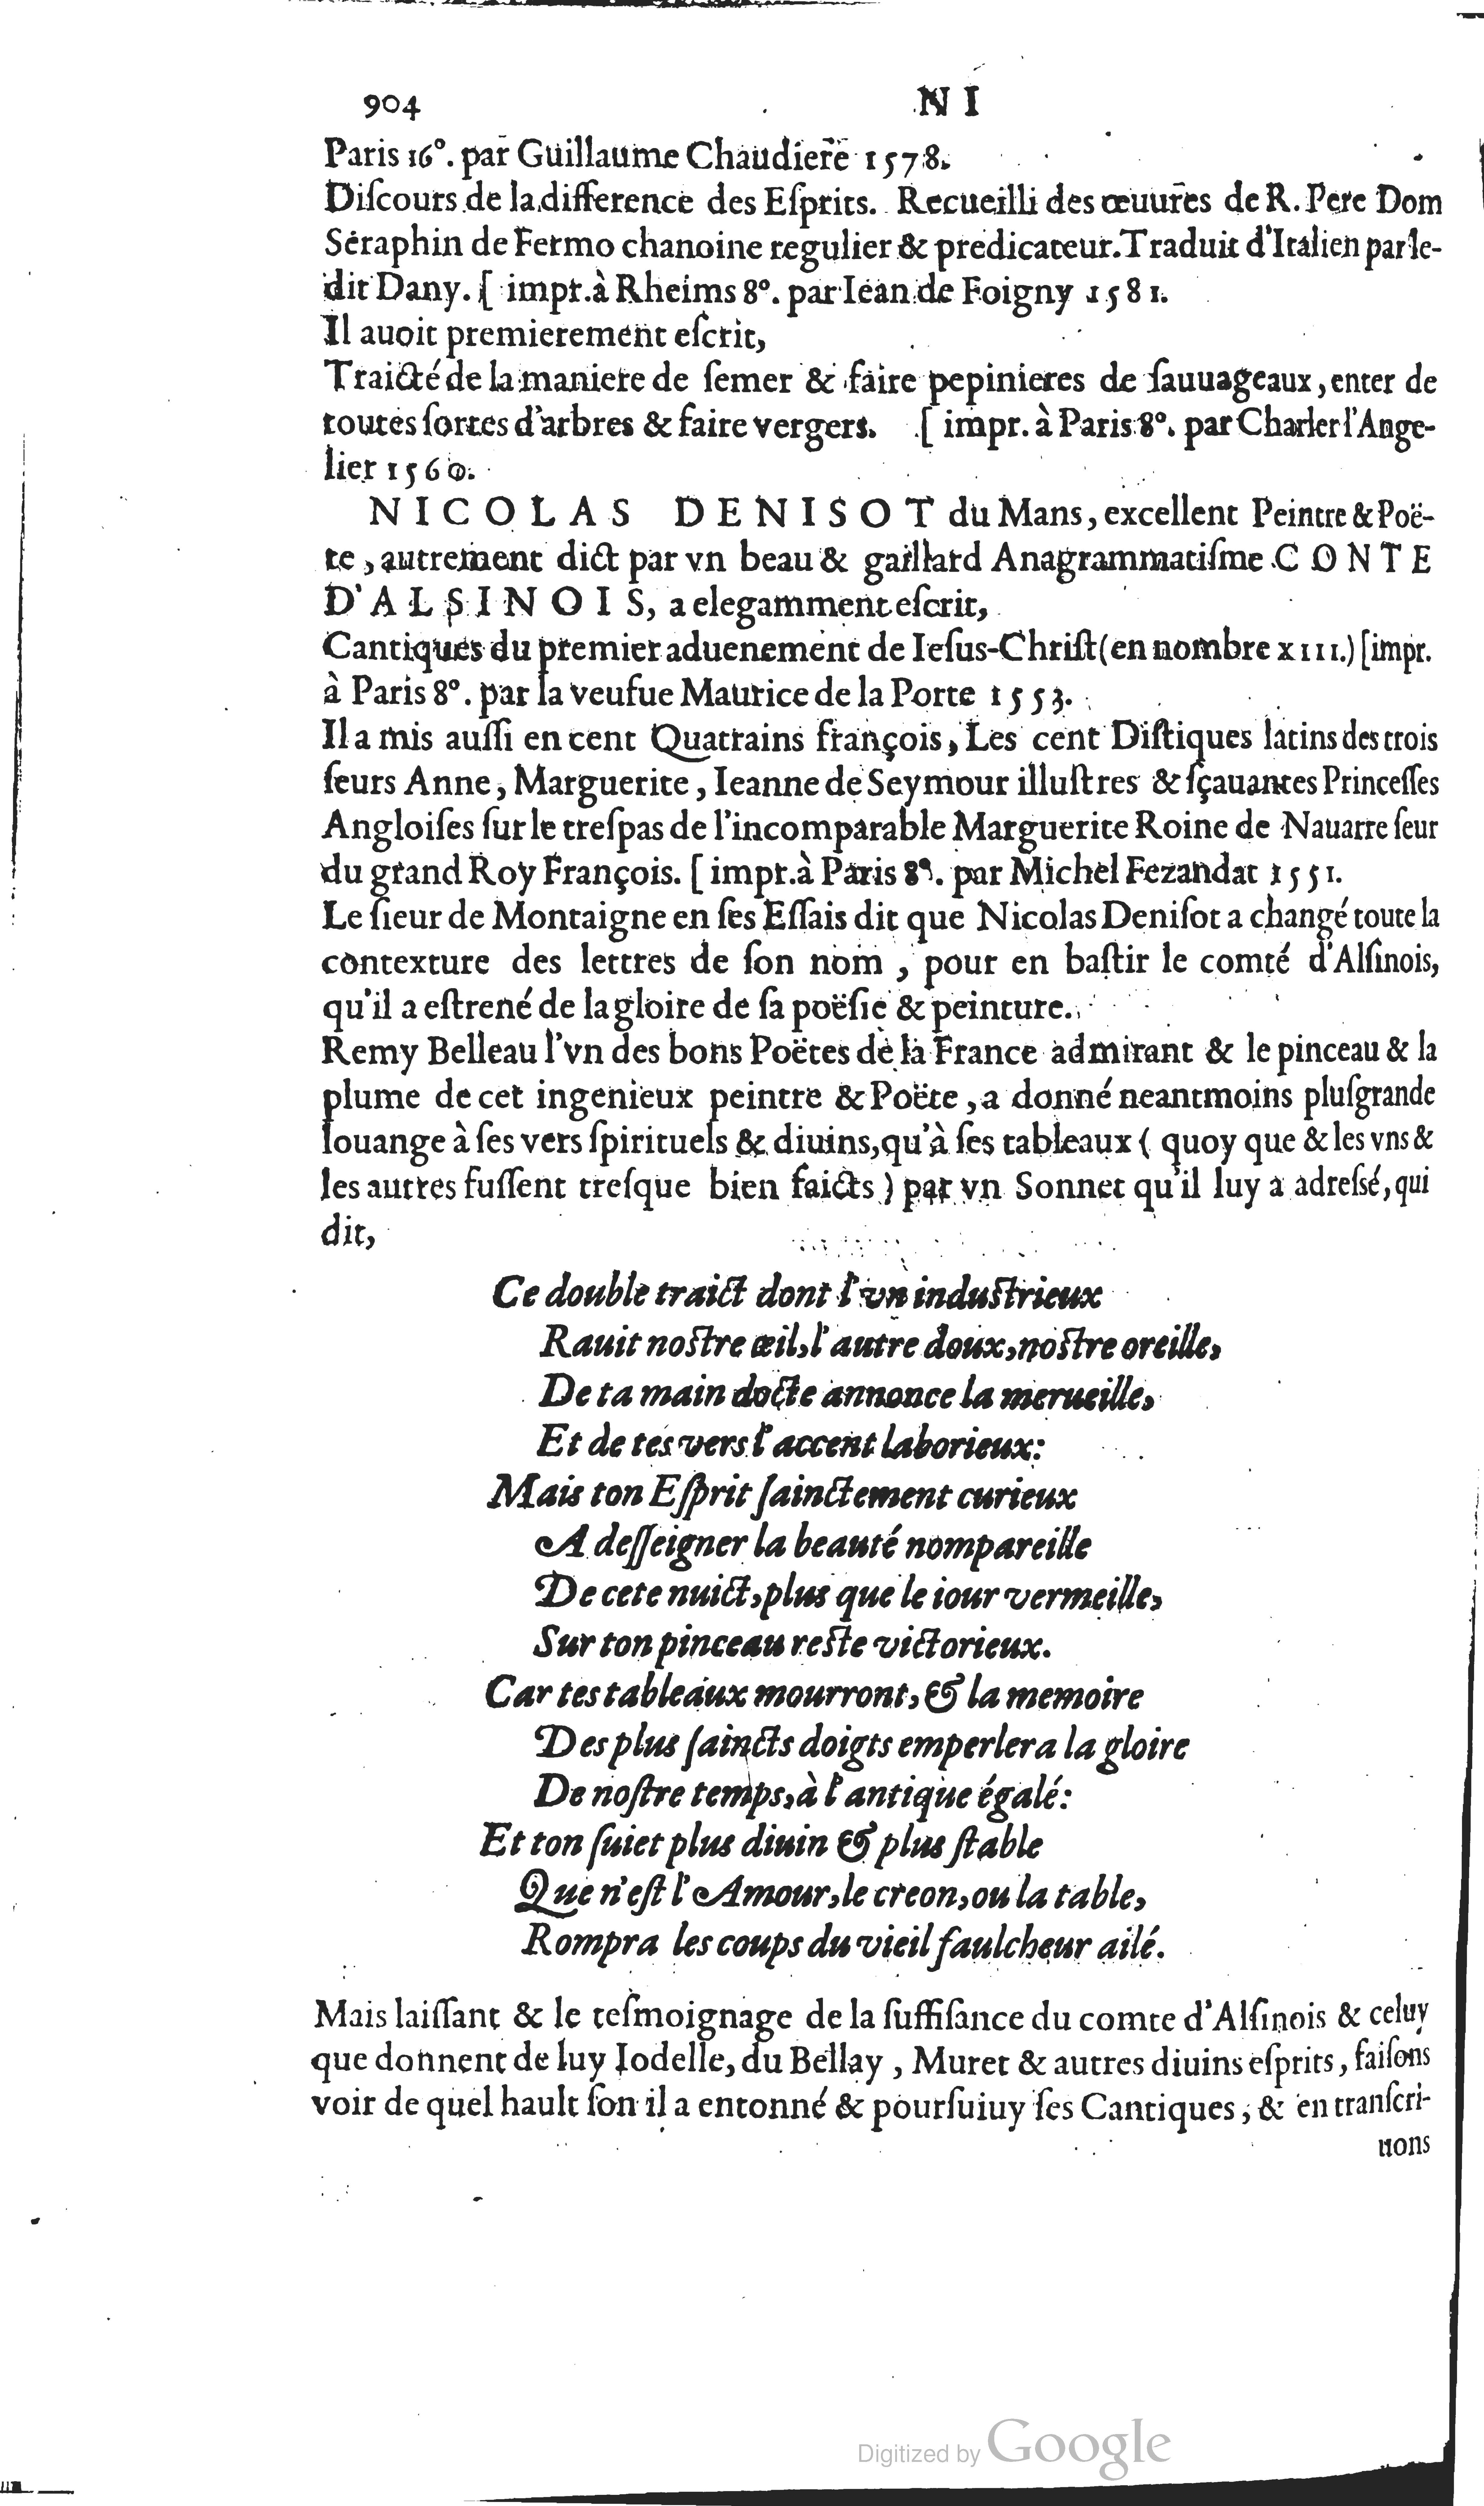 904 N I
Paris 16°. par Guillaume Chaudiere 1578.
Diſcours de la difference des Eſprits. Recueilli des œuures de R. Pere Dom
Seraphin de Fermo chanoine regulier & predicateur. Traduit d'Italien par le-
dit Dany. [ impr. à Rheims 8°. par Iean de Foigny 1581.
Il auoit premierement eſcrit,
Traicté de la maniere de ſemer & faire pepinieres de ſauuageaux, enter de
toutes ſortes d'arbres & faire vergers. [ impr. à Paris 8°. par Charler l'Ange-
lier 1560.
NICOLAS DENISOT du Mans, excellent Peintre & Poë-
te, autrement dict par vn beau & gaillard Anagrammatiſme CONTE
D'ALSINOIS, a elegamment eſcrit,
Cantiques du premier aduenement de Ieſus-Chriſt (en nombre XIII.) [impr.
à Paris 8°. par la veufue Maurice de la Porte 1553.
Il a mis auſſi en cent Quatrains françois, Les cent Diſtiques latins des trois
ſeurs Anne, Marguerite, Ieanne de Seymour illuſtres & ſçauantes Princeſſes
Angloiſes ſur le treſpas de l'incomparable Marguerite Roine de Nauarre ſeur
du grand Roy François. [ impr. à Paris 8°. par Michel Fezandat 1551.
Le ſieur de Montaigne en ſes Eſſais dit que Nicolas Deniſot a changé toute la
contexture des lettres de ſon nom, pour en baſtir le comté d'Alſinois,
qu'il a eſtrené de la gloire de ſa poëſie & peinture.
Remy Belleau l'vn des bons Poëtes de la France admirant & le pinceau & la
plume de cet ingenieux peintre & Poëte, a donné neantmoins pluſgrande
louange à ſes vers ſpirituels & diuins, qu'à ſes tableaux ( quoy que & les vns &
les autres fuſſent treſque bien faicts ) par vn Sonnet qu'il luy a adreſsé, qui
dit,
Ce double traict dont l'vn induſtrieux
Rauit noſtre œil, l'autre doux, noſtre oreille,
De ta main docte annonce la merueille,
Et de tes vers l'accent laborieux:
Mais ton Eſprit ſainctement curieux
A deſſeigner la beauté nompareille
De cete nuict, plus que le iour vermeille,
Sur ton pinceau reſte victorieux.
Car tes tableaux mourront, & la memoire
Des plus ſaincts doigts emperlera la gloire
De noſtre temps, à l'antique égalé:
Et ton ſuiet plus diuin & plus ſtable
Que n'eſt l'Amour, le creon, ou la table,
Rompra les coups du vieil faulcheur ailé.
Mais laiſſant & le teſmoignage de la ſuffiſance du comte d'Alſinois & celuy
que donnent de luy Iodelle, du Bellay, Muret & autres diuins eſprits, faiſons
voir de quel hault ſon il a entonné & pourſuiuy ſes Cantiques, & en tranſcri-
uons
Digitized by Google